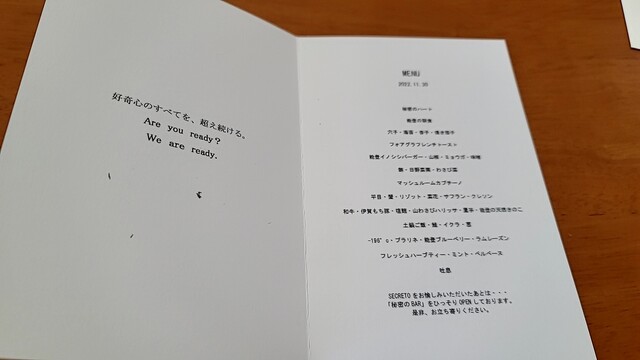 好奇心のすべてを、超え続ける。
Are you ready?
We are ready.
MENU
秘密のハート
フォアグラフレンチトースト
能登イノシシバーガー・山椒・ミョウガ・味噌
マッシュルームカプチーノ
平目・蟹・リゾット・菜花・サフラン・クレソン
和牛・伊賀もち豚・塩麹・山わさびハリッサ・栗芋・能登の天然きのこ
土鍋ご飯・鮭・イクラ・葱
-196°c・プラリネ・能登ブルーベリー・ラムレーズン
フレッシュハーブティー・ミント・ベルベーヌ
吐息
SECRETOをお愉しみいただいたあとは・・・
「秘密のBAR」をひっそりOPENしております。
是非、お立ち寄りください。